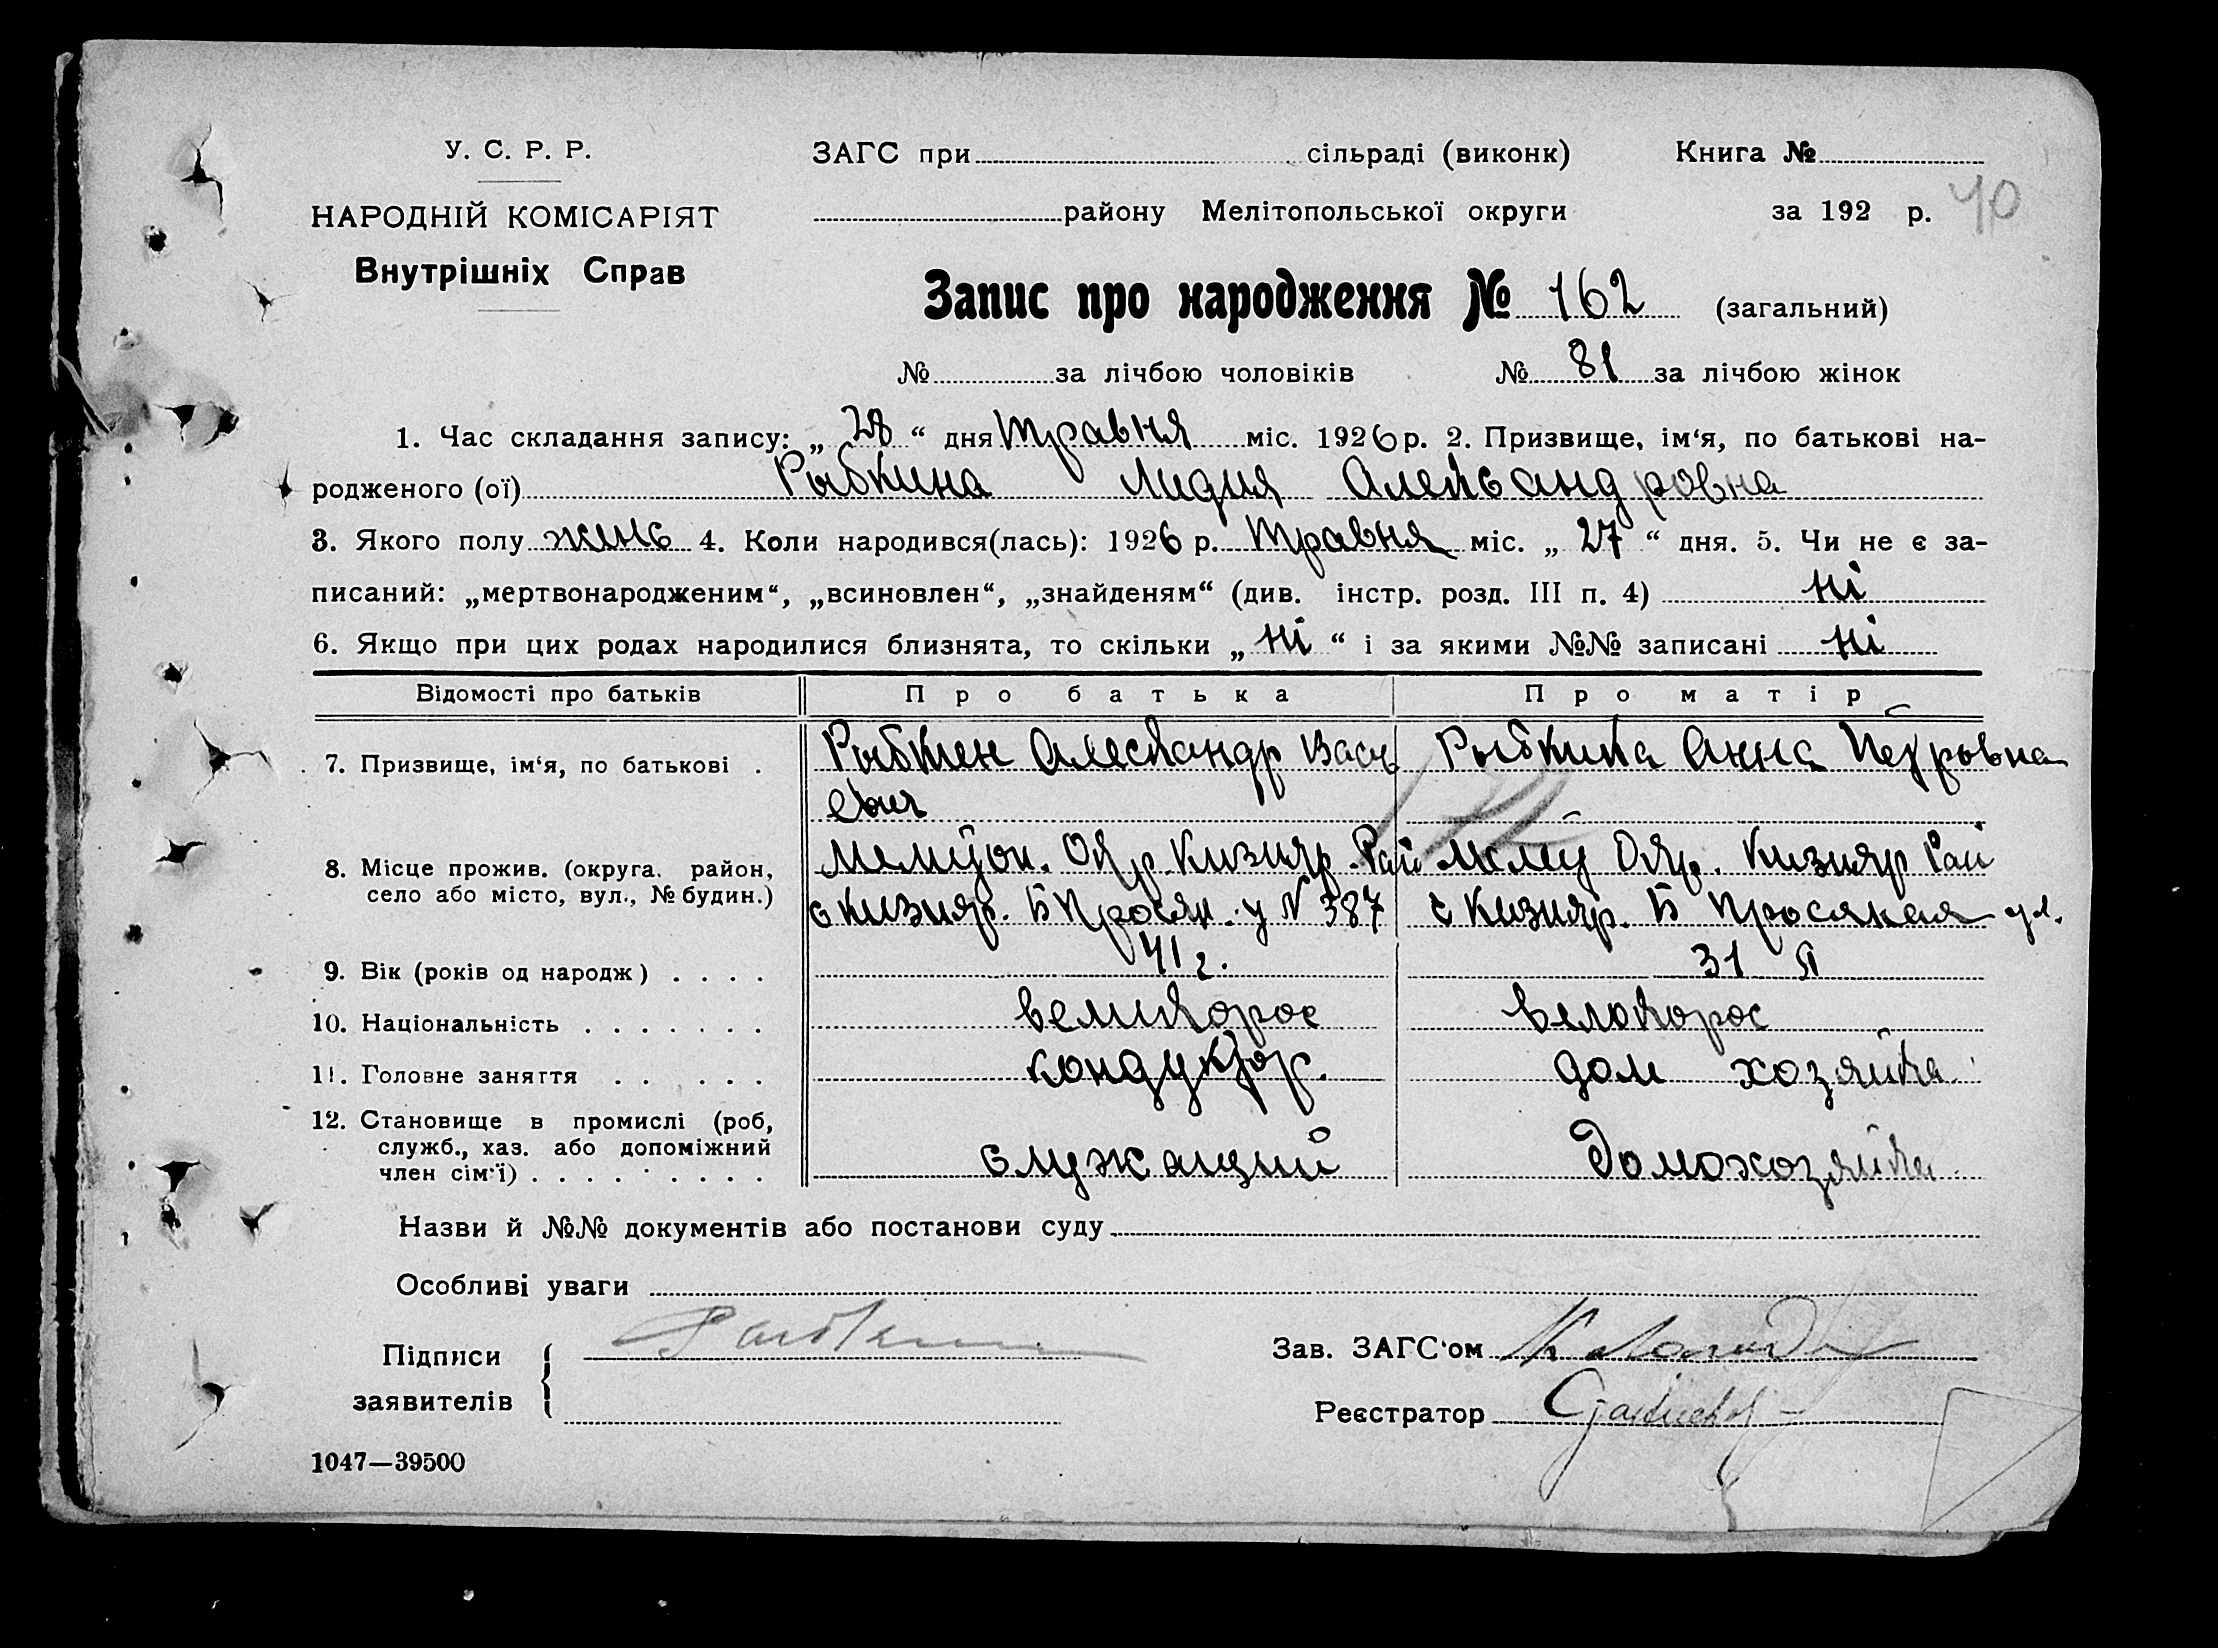 У. С. Р. Р.
НАРОДНІЙ КОМІСАРІЯТ
Внутрішніх Справ
ЗАГС при сільраді (виконк) Книга №
району Мелітопольської округи за 192 р. 40
Запис про народження № 162 (загальний)
№ за лічбою чоловіків № 81 за лічбою жінок
1. Час складання запису: „ 28 “ дня травня міс. 1926 р. 2. Призвище, ім‘я, по батькові на-
родженого (ої) Рыбкина Лидия Александровна
3. Якого полу жінь 4. Коли народився(лась): 1926 р. травня міс. „ 27 “ дня. 5. Чи не є за-
писаний: „мертвонародженим“, „всиновлен“, „знайденям“ (див. інстр. розд. III п. 4) ні
6. Якщо при цих родах народилися близнята, то скільки „ ні “ і за якими №№ записані ні
Відомості про батьків Про батька Про матір
7. Призвище, ім‘я, по батькові . Рыбкен Александр Вась Рыбкина Анна Петровна
евич
8. Місце прожив. (округа. район, Меліт̄оп. Окр. Кизияр. Рай Меліт Окр. Кизияр Рай
село або місто, вул., № будин.) с Кизияр. Б Просян. у N 387 с Кизияр. Б Просяная ул.
9. Вік (років од народж) . . . . 41 г. 31 л
10. Національність . . . . . . . великорос великорос
11. Головне заняття . . . . . . кондуктор. дом хозяйка
12. Становище в промислі (роб,
служб., хаз. або допоміжний
член сім‘ї) . . . . . . . . служащий домохозяйка
Назви й №№ документів або постанови суду
Особливі уваги
Підписи Рыбкин Зав. ЗАГС‘ом
заявителів Реєстратор
1047—39500